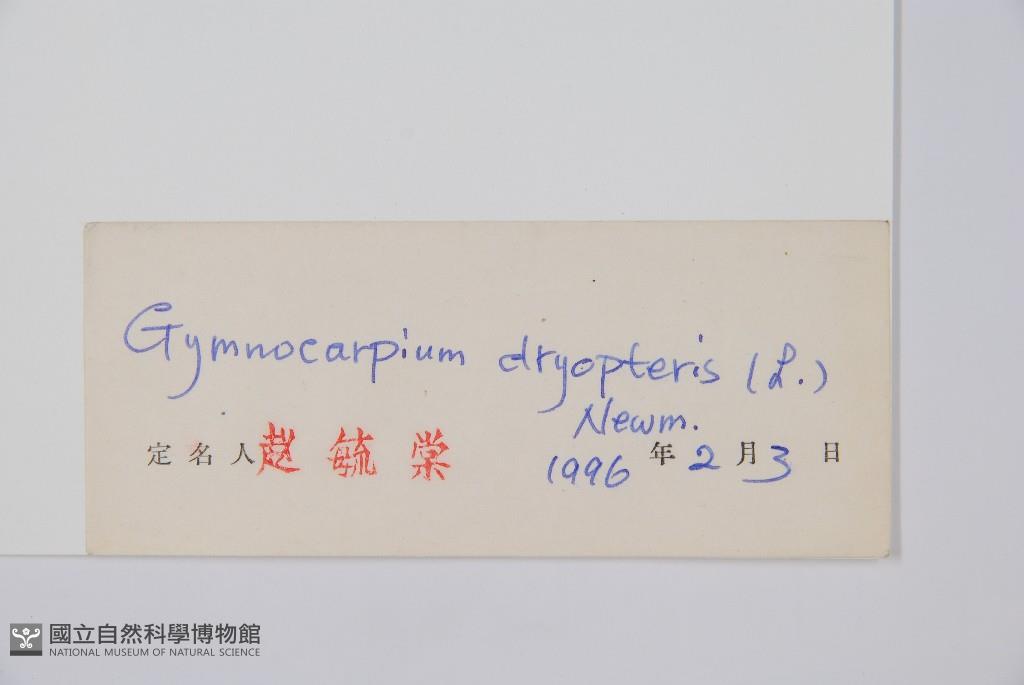 Gymnocarpium dryopteris (L.)
Newm.
定名人 赵毓棠 1996年2月3日
國立自然科學博物館
NATIONAL MUSEUM OF NATURAL SCIENCE